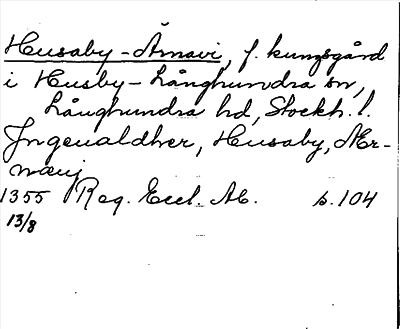 Husaby-Ärnavi, f. kungsgård
i Husby-Långhundra sn,
Långhundra hd, Stockh. l.
Jngeualdher, Husaby, Ær-
næuj
1355 Reg. Eccl. Ab. s. 104
13/8